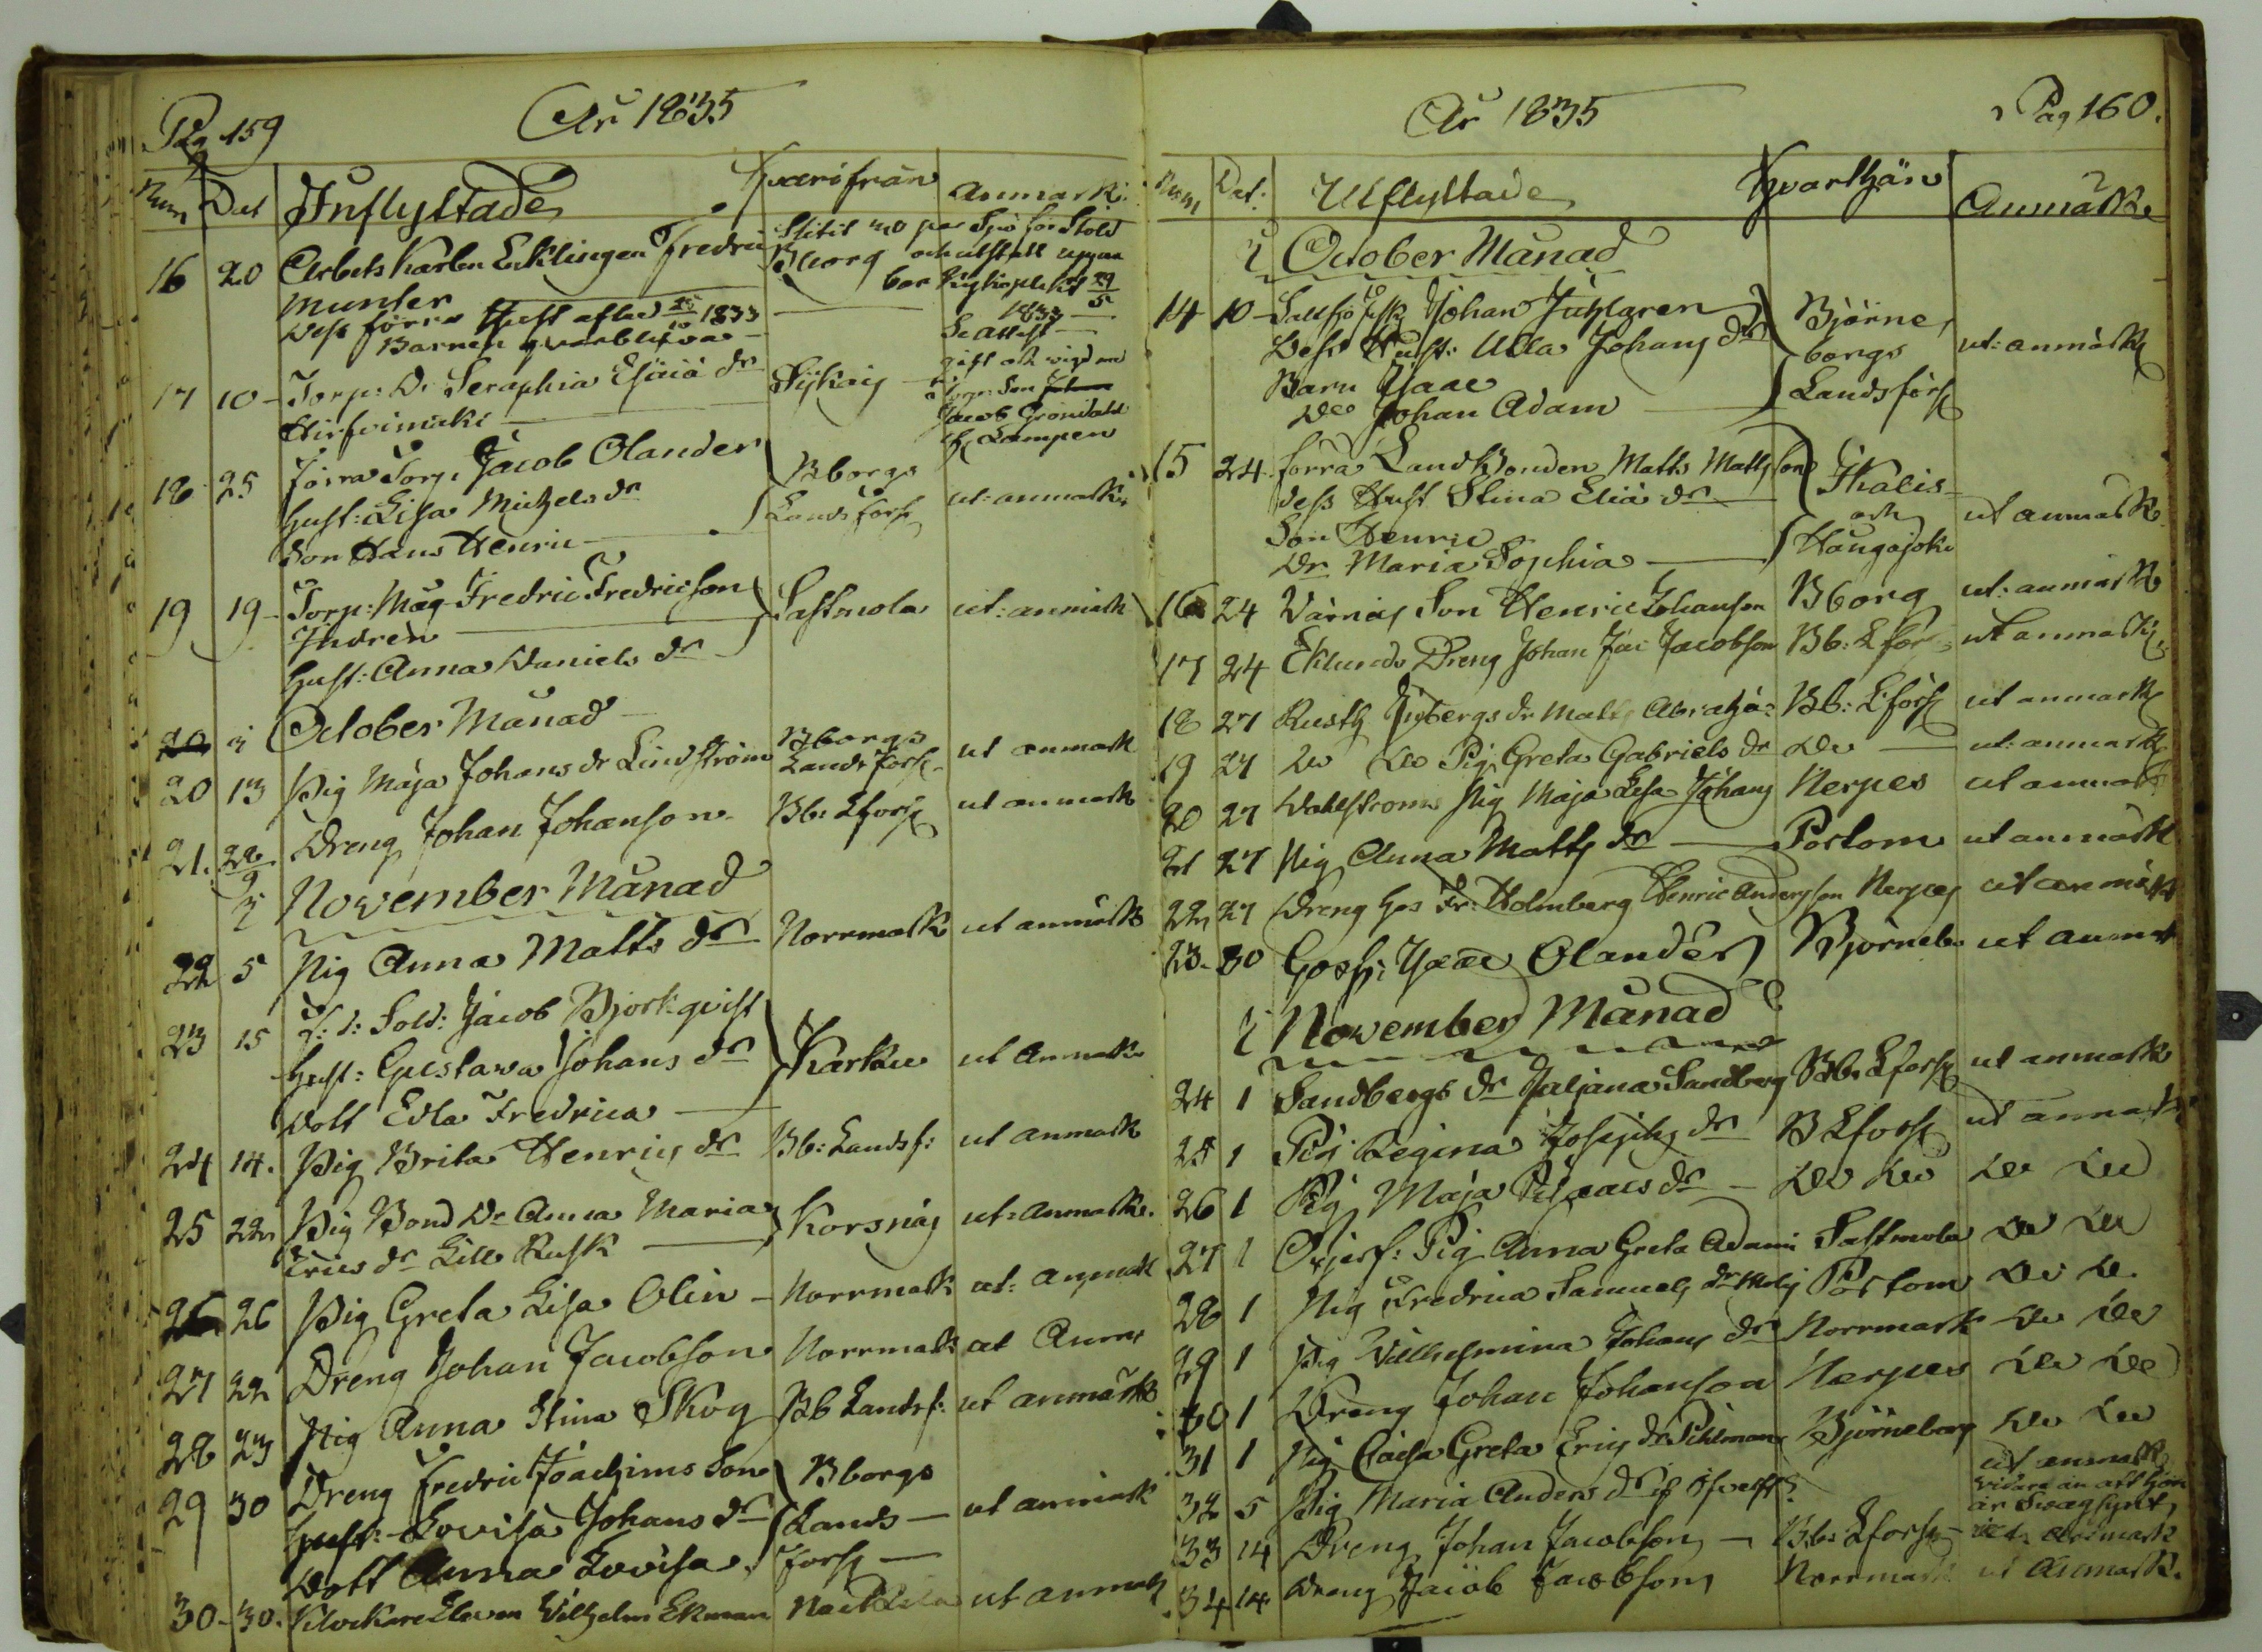 Pag 159
År 1835
Num Dat Inflyttade Hvarifrån Anmärk:
16 20 Arbets Karlen Eklingen Fredric
Munter
Dess förra Hust afled 25/10 1833
Barnen qvarblefva
Bborg
Se Attest
17 10 Torp: Dr Seraphia Esaiæ dr
gift och vigd med
Torp: Son
Jacob Gröndahl
18 25 förra Torp: Jacob Olander
Hust: Lisa Michels dr
Son Hans Henric
Bborgs
Lands förs
ut: anmärk:
19 19 Torp: Måg Fredric Fredricson
Hust: Anna Daniels dr
Sastmola ut: anmärk
20 i October Månad
20 13 Pig Maja Johans dr Lindström Bborgs Lands förs ut anmärk
21. 22 Dreng Johan Johanson Bb: Lförs ut anmärk
i November Månad
22 5 Pig Anna Matts dr Norrmark ut anmärk
23 15 f: d: Sold: Jacob Björkqvist
Hust: Gustava Johans dr Karkku ut Anmärk
Dott Edla Fredrica
24 14. Pig Brita Henrics dr Bb: Landsf: ut anmärk
25 22 Pig Bond Dr Anna Maria Korsnäs ut: anmärk.
Erics dr Lill Rusk
26 26 Pig Greta Lisa Olin Norrmark ut: anmärk
27 22 Dreng Johan Jacobson Norrmark ut Anm
28 23 Pig Anna Stina Skog Bb Landsf: ut anmärk
29 30 Dreng Fredric Joachims Son Bborgs
Hust: Lovisa Johans dr Lands ut anmärk
Dott Anna Lovisa förs
30 30. Klockare Eleven Vilhelm Ekman ut anmärk
År 1835
Pag 160.
Num Dat: Utflyttade Hvarthän Anmärk
i October Månad
14 10 Johan Juhlgren Björne
Dess Hust: Ulla Johans dr borgs ut: anmärk
Barn Isaac Lands förs
Do Johan Adam
15 24. förra Landbonden Matts Mattsson Ikalis
dess Hust Stina Eliæ dr och ut anmärk
Son Henric Hongojoki
Dr Maria Sophia
16 24 Värnäs Son Henric Johanson Bborg ut: anmärk
17 24 Eklunds Dreng Johan Jac Jacobson Bb: Lförs ut anmärk
18 27 Rusth dr Bb: Lförs ut anmärk
19 27 Do Do Pig Greta Gabriels dr Do ut: anmärk
20 27 Dahlströms Pig Maja Lisa Johans Nerpes ut anmärk
21 27 Pig Anna Matts dr Portom ut anmärk
22 27 Dreng hos Fr: Holmberg Henric Andersson Nerpes ut anmärk
23. 30 Isaac Olander Björneb ut anmärk
i November Månad
24 1 Sandbergs dr Juljana Sandberg Bb: Lförs ut anmärk
25 1 Pig Regina Josephs dr B Lförs ut anmärk
26 1 Pig Maja Isaacs dr Do Do Do Do
27 1 Pig Anna Greta Adams Sastmola Do Do
28 1 Pig Fredrica Samuels dr Portom Do Do
29 1 Pig Vilhelmina Johans dr Norrmark Do Do
30 1 Dreng Johan Johanson Nerpes Do Do
31 1 Pig Cajsa Greta Erics dr Pihlman Björneborg Do Do
32 5 Pig Maria Anders dr ut anmärk
vidare än att hon
är svagsynt
33 14 Dreng Johan Jacobson Bb: Lförs ut anmärk
34 14 Dreng Jacob Jacobson Norrmark ut Anmärk.